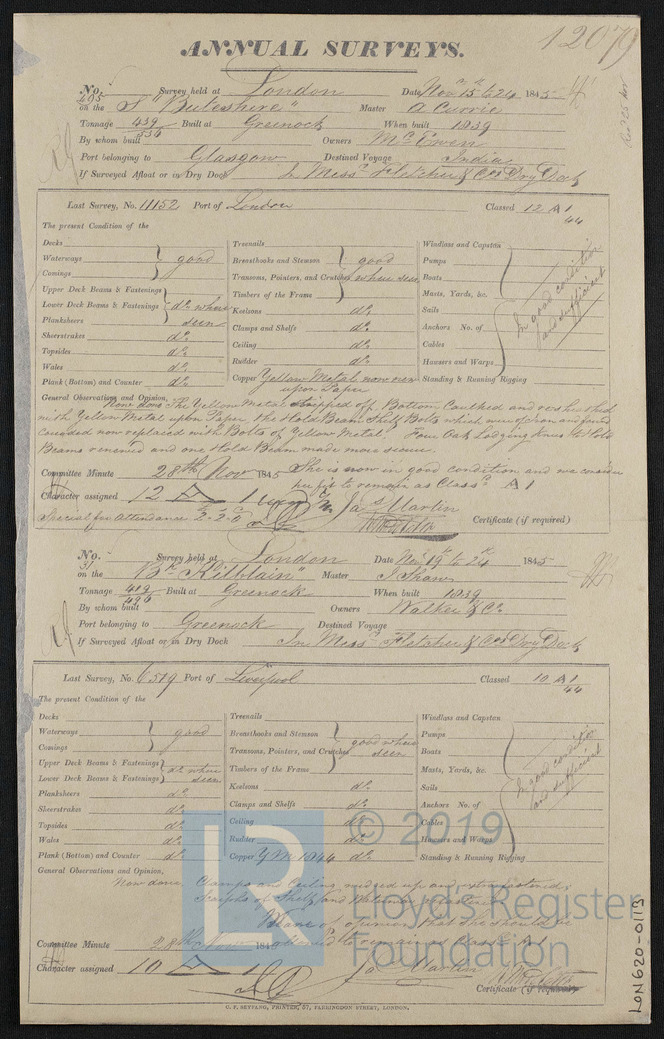 12079
ANNUAL SURVEYS.
No. 495 Survey held at London Date Novr 15 to 24 1845
on the S "Buteshire" Master A Currie
Tonnage 439 534 Built at Greenock When built 1839
By whom built Owners McEwen
Port belonging to Glasgow Destined Voyage India
If Surveyed Afloat or in Dry Dock In Messrs Fletcher & Cos Dry Dock
Last Survey, No. 11152 Port of London Classed 12 A1 44
The present Condition of the
Decks
Waterways good
Comings
Upper Deck Beams & Fastenings
Lower Deck Beams & Fastenings do where seen
Planksheers
Sheerstrakes do
Topsides do
Wales do
Plank (Bottom) and Counter do
Treenails
Breasthooks and Stemson good
Transoms, Pointers, and Crutches where seen
Timbers of the Frame
Keelsons do
Clamps and Shelfs do
Ceiling do
Rudder do
Copper Yellow Metal now new upon Paper
Windlass and Capstan
Pumps
Boats
Masts, Yards, &c.
Sails
Anchors No. of
Cables
Hausers and Warps
Standing & Running Rigging
In good condition and sufficient
General Observations and Opinion,
Now done The Yellow Metal stripped off Bottom Caulked and resheathed
with Yellow Metal upon Paper, the Hold Beam Shelf Bolts which were of iron and found
corroded now replaced with Bolts of Yellow Metal. Four Oak Lodging Knees to Hold
Beams renewed and one Hold Beam made more secure.
She is now in good condition and we consider
her fit to remain as Classd A1
Committee Minute 28th Novr 1845
Character assigned 12 A 1
Jas Martin
Special fee Attendance 2-2-0
Certificate (if required)
No. 31 Survey held at London Date Novr 19th to 24th 1845
on the Bk "Kilblain" Master J Shaw
Tonnage 412 496 Built at Greenock When built 1839
By whom built Owners Walker & Co
Port belonging to Greenock Destined Voyage
If Surveyed Afloat or in Dry Dock In Messrs Fletcher & Cos Dry Dock
Last Survey, No. 6579 Port of Liverpool Classed 10 A1 44
The present Condition of the
Decks
Waterways good
Comings
Upper Deck Beams & Fastenings
Lower Deck Beams & Fastenings do where seen
Planksheers do
Sheerstrakes do
Topsides do
Wales do
Plank (Bottom) and Counter do
Treenails
Breasthooks and Stemson
Transoms, Pointers, and Crutches good where seen
Timbers of the Frame
Keelsons do
Clamps and Shelfs do
Ceiling do
Rudder do
Copper YM 1844 do
Windlass and Capstan
Pumps
Boats
Masts, Yards, &c.
Sails
Anchors No. of
Cables
Hausers and Warps
Standing & Running Rigging
In good condition and sufficient
General Observations and Opinion,
Now done. Clamps and Ceiling and extra fastened,
Scarphs of Shelf and
We are of opinion that she should be
to remain as Classd A1
Committee Minute 28th Novr 184
Character assigned 10 A 1
Jas Martin
Certificate (if required)
C. F. SEYFANG, PRINTER, 57, FARRINGDON STREET, LONDON.
LR © 2019
Lloyd's Register
Foundation
LON620-0113